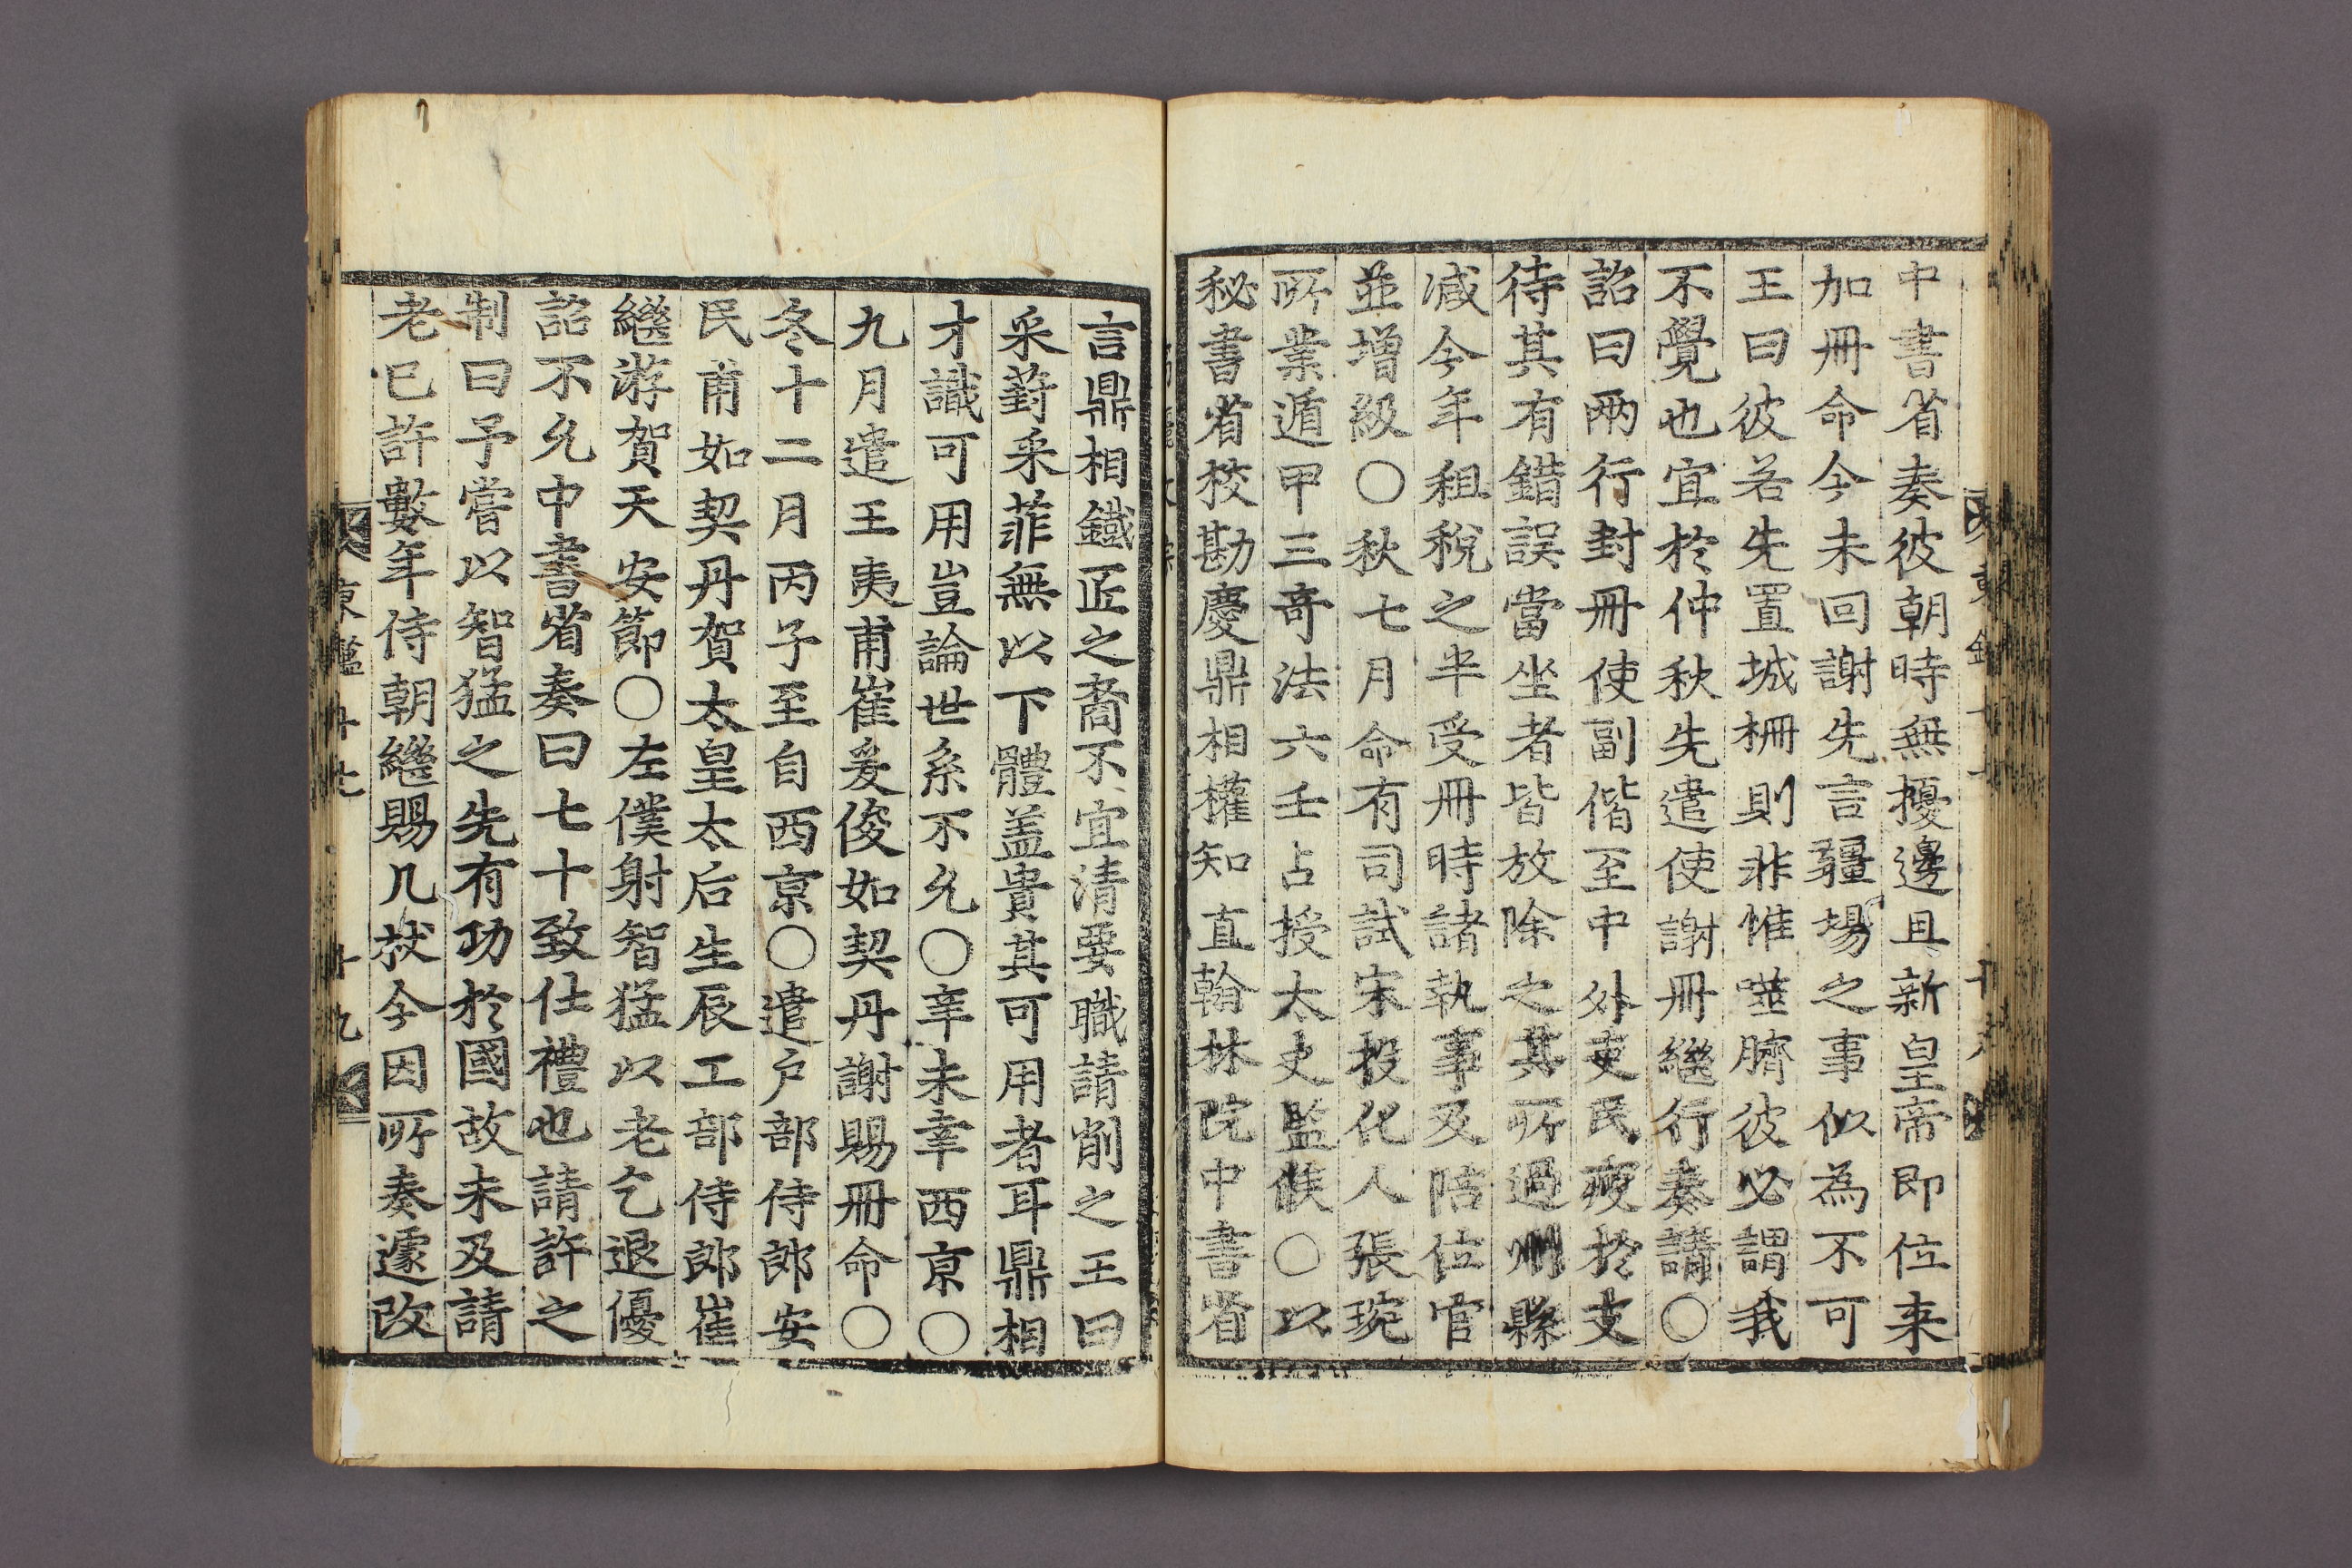 中書省奏彼朝時無擾邊具新皇帝即位来
加冊命今未回謝先言疆場之事似為不可
王曰彼若先置城柵則非惟噬臍彼必謂我
不覺也宜於仲秋先遣使謝冊繼行奏請〇
詔曰兩行封冊使副偕至中外吏民疲於支
待其有錯誤當坐者皆放除之其所過州縣
减今年租稅之半受冊時諸執事及陪位官
並增級〇秋七月命有司試宋投化人張琬
所業遁甲三奇法六壬占授太史監候〇以
秘書省校勘慶鼎相權知直翰林院中書省
言鼎相鐵匠之裔不宜清要職請削之王曰
采葑采菲無以下體盖貴其可用者耳鼎相
才識可用豈論世系不允〇辛未幸西京〇
九月遣王夷甫崔爰俊如契丹謝賜冊命〇
冬十二月丙子至自西京〇遣户部侍郎安
民甫如契丹賀太皇太后生辰工部侍郎崔
繼游賀天安節〇左僕射智猛以老乞退優
詔不允中書省奏曰七十致仕禮也請許之
制曰予嘗以智猛之先有功於國故未及請
老已許數年侍朝繼賜几杖今因所奏遽改
東鑑 十九